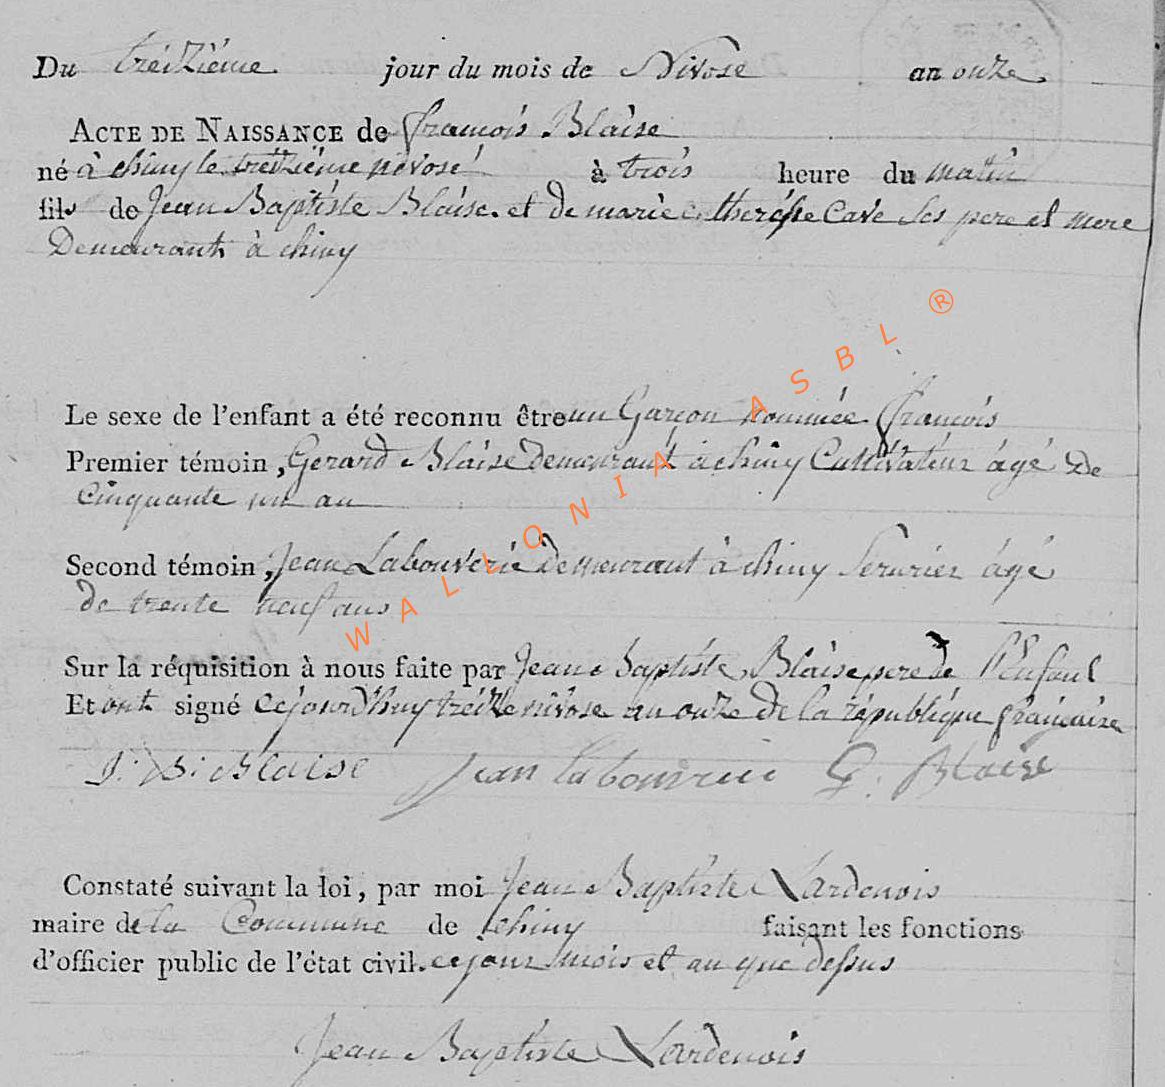 Du treiziéme jour du mois de Nivose an onze.
ACTE DE NAISSANCE de françois Blaise
né à chiny le treiziéme nivose à trois heure du matin
fils de Jean Baptiste Blaise. et de marie therésse Cave ses pere et mere
Demeurant à chiny
Le sexe de l'enfant a été reconnu être un Garçon nommée françois
Premier témoin, Gerard Blaise demeurant à chiny Cultivateur âgé De
Cinquante un an
Second témoin, Jean Labouverie demeurant à chiny Serurier âgé
de trente neuf ans
Sur la réquisition à nous faite par Jean Baptiste Blaise pere de l'Enfant
Et ont signé cejourd'huy treize nivose an onze de la république française
J: B: Blaise Jean labouverie G: Blaise
Constaté suivant la loi, par moi Jean Baptiste Lardenois
maire de la Commune de chiny faisant les fonctions
d'officier public de l'état civil. ce jour mois et an que dessus
Jean Baptiste Lardenois
WALLONIA ASBL ®